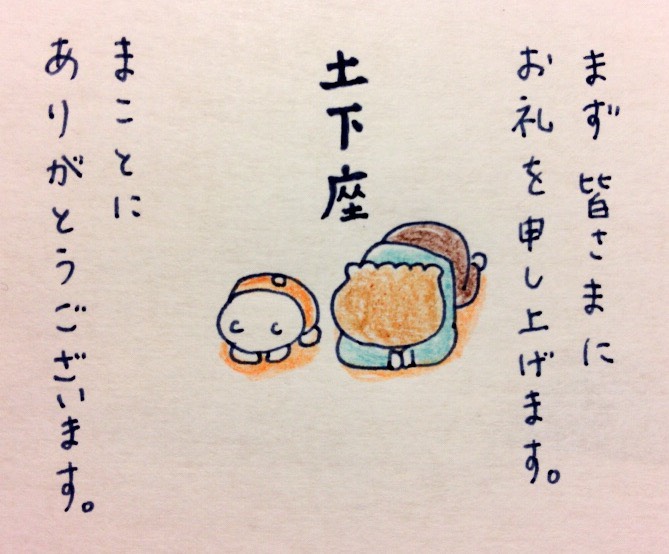 まず皆さまに
お礼を申し上げます。
土下座
まことに
ありがとうございます。